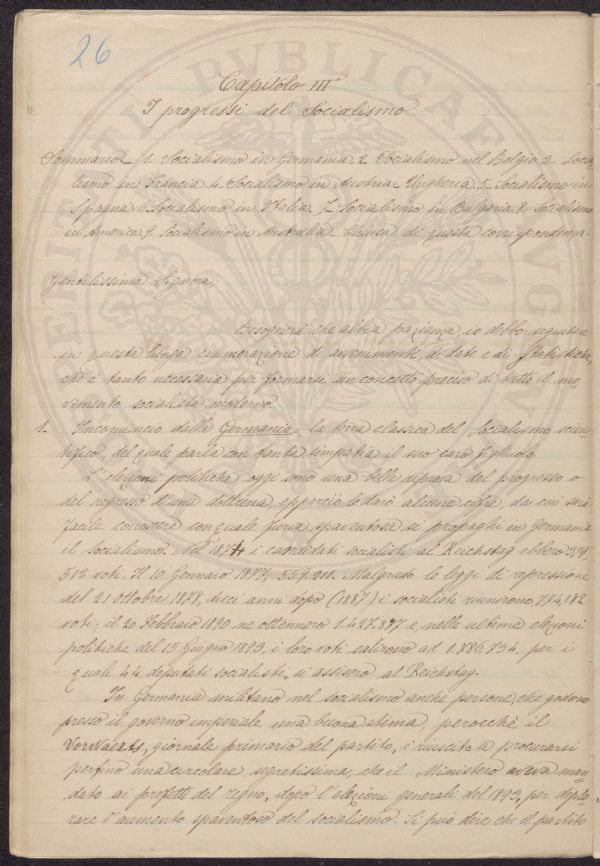 26
Capitolo III
I progressi del Socialismo
Sommario_ 1. Socialismo in Germania. 2. Socialismo nel Belgio. 3. Socia-
lismo in Francia. 4. Socialismo in Austria-Ungheria. 5. Socialismo in
Spagna. 6. Socialismo in Italia. 7. Socialismo in Bulgaria. 8. Socialismo
in America. 9. Socialismo in Australia. Chiusa di questa corrispondenza.
Gentilissima Signora,
Bisognerà che abbia pazienza, io debbo seguitare
in questa lunga enumerazione d'avvenimenti, di date e di statistiche,
che è tanto necessaria per formarsi un concetto preciso di tutto il mo-
vimento socialista moderno.
1. Incomincio dalla Germania, la terra classica del Socialismo scien-
tifico, del quale parla con tanta simpatia il suo caro figliuolo.
L'elezioni politiche oggi sono una bella riprova del progresso o
del regresso d'una dottrina epperciò le darò alcune cifre, da cui sarà
facile conoscere con quale furia spaventosa si propaghi in Germania
il socialismo. Nel 1874 i candidati socialisti al Reichstag ebbero 379.
512 voti. Il 10 Gennaio 1877, 559.211. Malgrado le leggi di repressione
del 21 Ottobre 1878, dieci anni dopo (1887) i socialisti riunirono 774.182
voti; il 20 Febbraio 1890 ne ottennero 1.427.877 e, nelle ultime elezioni
politiche del 15 Giugno 1893, i loro voti salirono ad 1.786.734, per i
quali 44 deputati socialisti si assisero al Reichstag.
In Germania militano nel socialismo anche persone, che godono
presso il governo imperiale una buona stima, perocchè il
giornale primario del partito, è riuscito a procurarsi
perfino una circolare segretissima, che il Ministero aveva man-
dato ai prefetti del regno, dopo l'elezioni generali del 1893, per deplo-
rare l'aumento spaventoso del socialismo. Si può dire che il partito
PVBLICAE